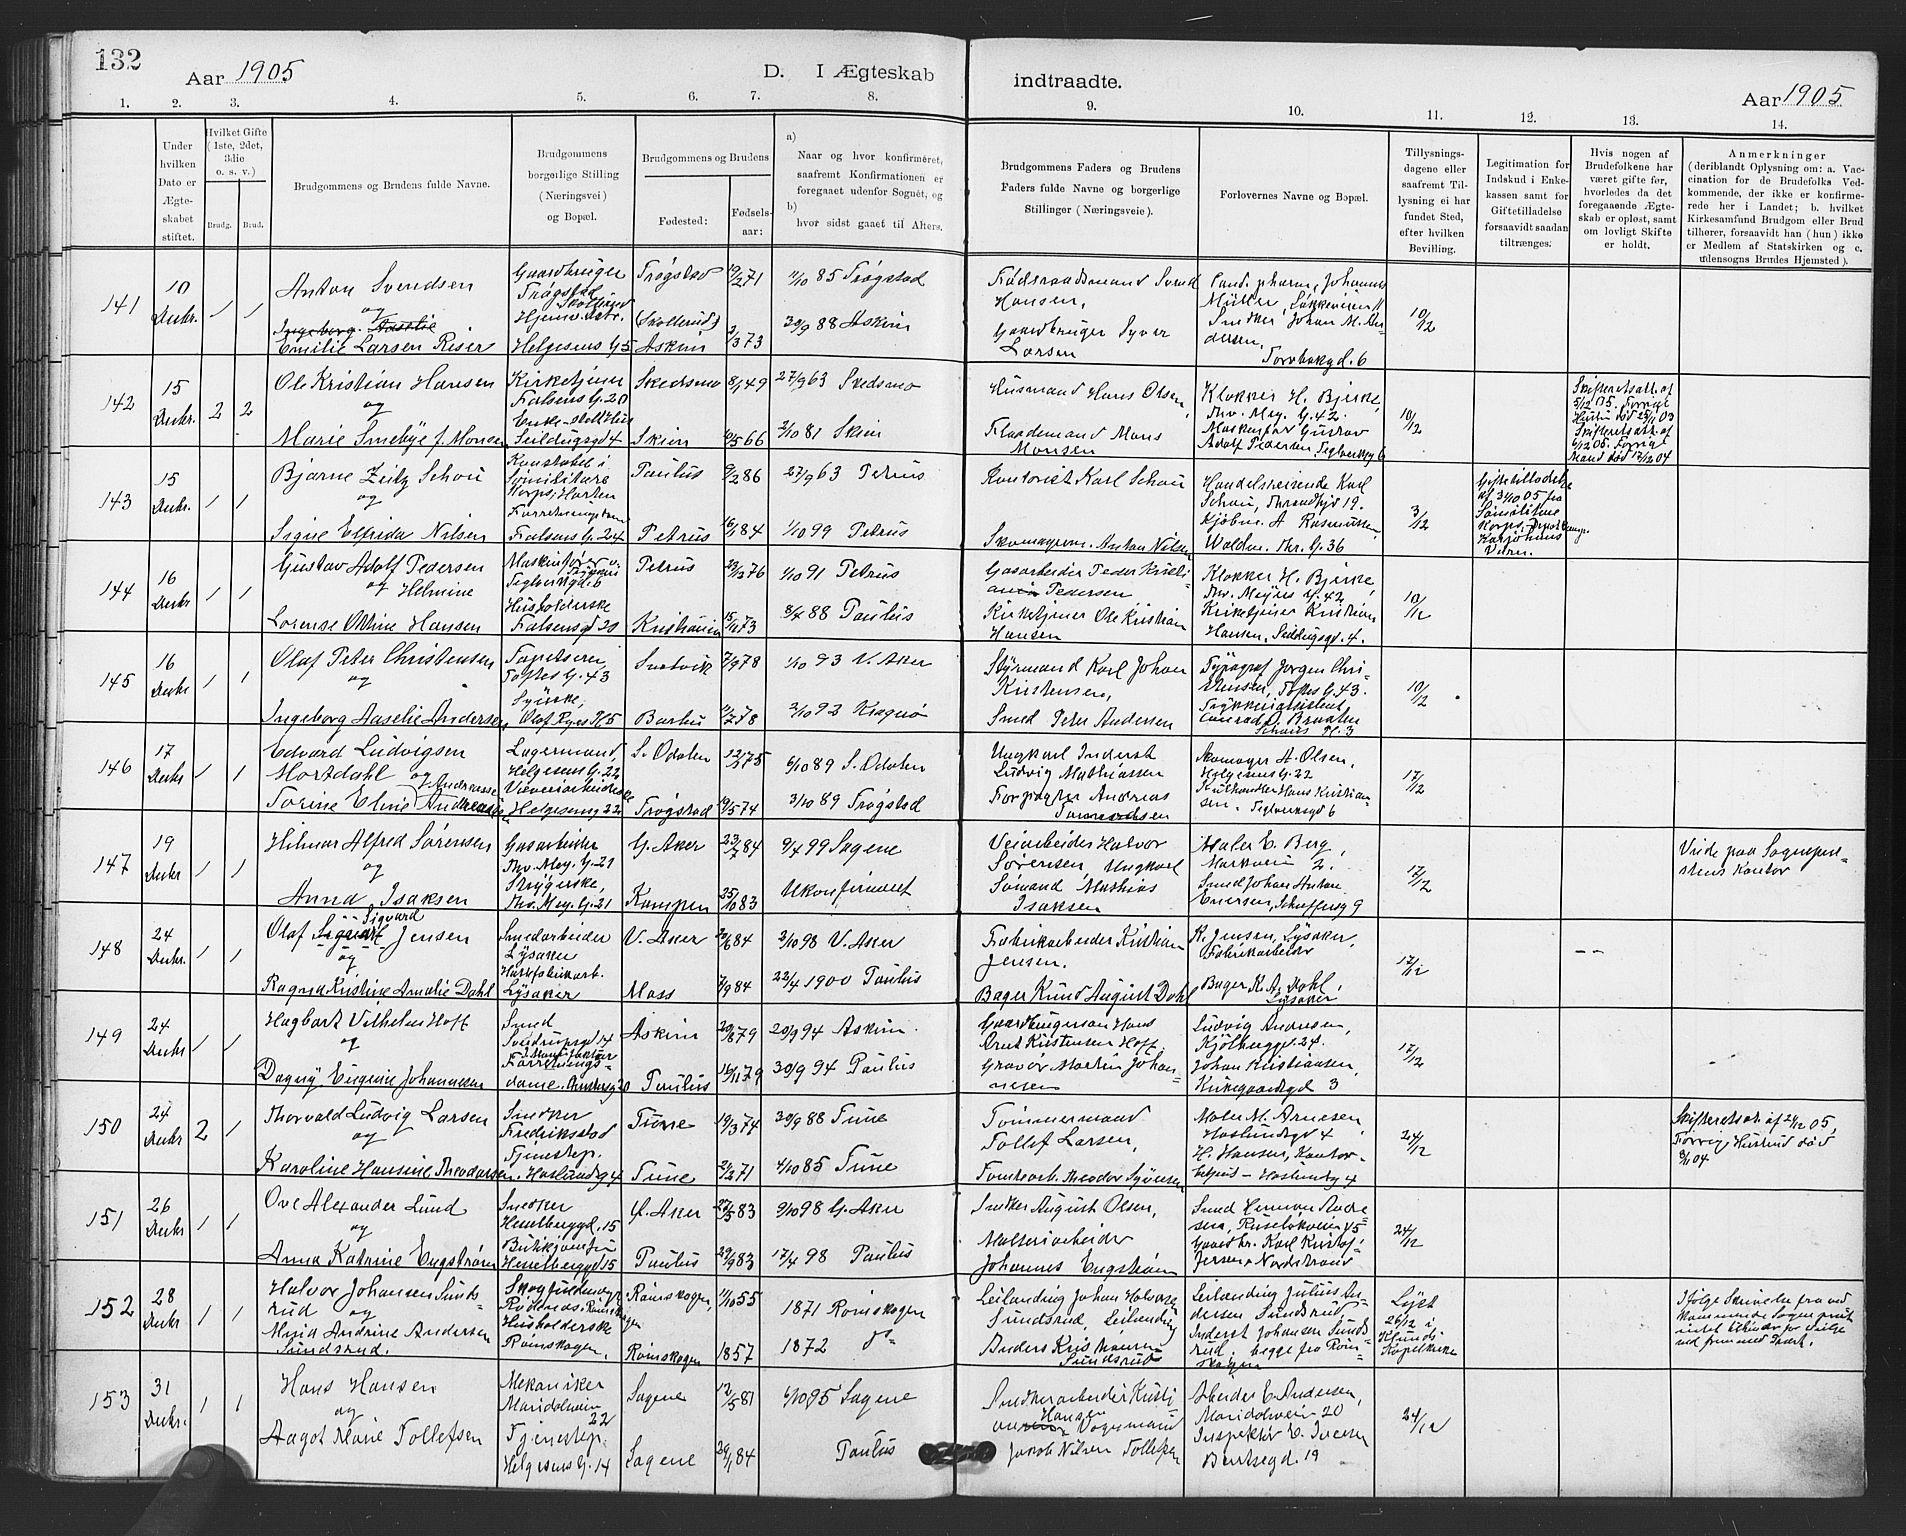 132
Aar 1905
D. I Ægteskab
indtraadte.
Aar 1905
1.
2.
3.
4.
5.
6.
7.
8.
9.
10.
11.
12.
13.
14.
Under
hvilken
Dato er
Ægte-
skabet
stiftet.
Hvilket Gifte
(1ste, 2det,
3die
o. s. v.)
Brudg.
Brud.
Brudgommens og Brudens fulde Navne.
Brudgommens
borgerlige Stilling
(Næringsvei)
og Bopæl.
Brudgommens og Brudens
Fødested:
Fødsels-
aar:
a)
Naar og hvor konfirméret,
saafremt Konfirmationen er
foregaaet udenfor Sognet, og
b)
hvor sidst gaaet til Alters.
Brudgommens Faders og Brudens
Faders fulde Navne og borgerlige
Stillinger (Næringsveie).
Forlovernes Navne og Bopæl.
Tillysnings-
dagene eller
saafremt Til-
lysning ei har
fundet Sted,
efter hvilken
Bevilling.
Legitimation for
Indskud i Enke-
kassen samt for
Giftetilladelse
forsaavidt saadan
tiltrænges.
Hvis nogen af
Brudefolkene har
været gifte før,
hvorledes da det
foregaaende Ægte-
skab er opløst, samt
om lovligt Skifte
er holdt.
Anmerkninger
(deriblandt Oplysning om: a. Vac-
cination for de Brudefolks Ved-
kommende, der ikke er konfirme-
rede her i Landet; b. hvilket
Kirkesamfund Brudgom eller Brud
tilhører, forsaavidt han (hun) ikke
er Medlem af Statskirken og c.
udensogns Brudes Hjemsted).
141
10
Decbr.
1 1
Anton Svendsen
og
Ingeborg Aaselie
Emilie Larsen Riser
Gaardbruger
Trøgstad
Helgesens G. 5
Trøgstad
(Skollerud)
Askim
19/2 71
2/3 73
11/10 85 Trøgstad
30/9 88 Askim
Fødsraadsmand Svend
Hansen,
Gaardbruger Syver
Larsen
Cand. pharm. Johannes
Müller,
Snedker Johan M. An-
dersen,
10/12
142
15
Decbr.
2 2
Ole Kristian Hansen
og
Marie Smebye f. Monsen
Kirketjener
Falsens G. 20
Seildugsgd 4
Skedsmo
Skien
8/1 49
6/5 66
27/9 63 Skedsmo
2/10 81 Skien
Husmand Hans Olsen,
Flaademand Mons
Monsen
Klokker H. Bjerke,
Thv. Mey. G. 42.
Gustav
Adolf Pedersen, Teglverksg 6
10/12
Skifteretsatt. af
5/12 05. Forrige
Hustru død 25/1 03
Skifteretsatt. af
6/12 05. Forrige
Mand død 17/12 04
143
15
Decbr.
1 1
Bjarne Zeilz Schou
og
Signe Elfrida Nilsen
Konstabel i
Sømilitære
Korps, Horten
Falsens G. 24
Paulus
Petrus
9/2 86
16/1 84
27/9 63 Petrus
1/10 99 Petrus
Kontorist Karl Schou
Skomagerm. Anton Nilsen
Handelsreisende Karl
Schou, Throndhjgd 19.
Kjøbm. A Rasmussen,
Waldm. Thr. G. 36
3/12
Giftetilladelse
af 31/10 05 fra
Sømilitære
Korps,
Karljohans
Værn.
144
16
Decbr
1 1
Gustav Adolf Pedersen
og Helmine
Lorense Othine Hansen
Teglverksgd. 6
Husholderske
Falsensgd 20
Petrus
Kristiania
23/12 76
15/12 73
1/10 91 Petrus
8/4 88 Paulus
Gasarbeider Peder Kristi-
ansen Pedersen
Kirketjener Ole Kristian
Hansen
Klokker H. Bjerke,
Thv. Meyers G. 42
Kirketjener Kristian
Hansen, Seildugsgd. 4.
10/12
145
16
Decbr
1 1
Olaf Peter Christensen
og
Ingeborg Aaselie Andersen
Tapetserer
Toftes G. 43
Syerske,
Olaf Ryes Pl 5
Svelvik
Barbu
7/9 78
11/2 78
1/10 93 V. Aker
2/10 92 Kragerø
Styrmand Karl Johan
Kristensen,
Smed Peter Andersen
Typograf Jørgen Chri-
stensen, Toftes G. 43.
Conrad O. Braaten
Schous Pl. 3
10/12
146
17
Decbr
1 1
Edvard Ludvigsen
Mortdahl og
Torine Eline Andreassen
Lagermand,
Helgesens G. 22
Væveriarbeiderske
Helgesensg 22
S. Odalen
Trøgstad
12/2 75
19/5 74
6/10 89 S. Odalen
3/10 89 Trøgstad
Ungkarl Inderst
Ludvig Mathiassen
Forpagter Andreas
Skomager A. Olsen,
Helgesens G. 22
Kulhandler Hans Kristian-
sen. Teglverksgd 6
17/12
147
19
Decbr
1 1
Hilmar Alfred Sørensen
og
Anna Isaksen
Gasarbeider
Thv. Mey. G. 21
Strygerske,
Thv. Mey. G. 21
G. Aker
Kampen
23/7 84
25/10 83
9/4 99 Sagene
Ukonfirmeret
Veiarbeider Halvor
Sørensen, Ungkarl
Sømand Mathias
Isaksen
Maler E. Berg,
Markveien 2.
Smed Johan Anton
Eversen, Schleppegrg 9
17/12
Viede paa Sognepre-
stens Kontor
148
24
Decbr.
1 1
Sigvard
Olaf Jensen
og
Ragna Kristine Amalie Dahl
Smedarbeider
Lysaker
Lysaker
V. Aker
Moss
20/6 84
7/9 84
2/10 98 V. Aker
22/4 1900 Paulus
Fabrikarbeider Kristian
Jensen.
Bager Knud August Dahl
K. Jensen, Lysaker,
Fabrikarbeider
Bager K. A. Dahl,
Lysaker
17/12
149
24
Decbr
1 1
Hagbart Vilhelm Hoff
og
Dagny Eugenie Johannesen
Smed
Sverdrupsgd 14
Forretnings-
dame,
Askim
Paulus
20/8 79
14/11 79
20/9 94 Askim.
30/9 94 Paulus
Gaardbrugersøn Hans
Arnt Kristensen Hoff.
Gravør Martin Johan-
nesen
Ludvig Andresen,
Kjølberggd. 24.
Johan Kristiansen,
Kirkegaardsgd 3
17/12
150
24
Decbr
2 1
Thorvald Ludvig Larsen
og
Karoline Hansine Theodorsen
Snedker
Fredriksstad
Tjenestep.
Haslundsg 4
Tune
Tune
19/3 74
21/2 71
30/9 88 Tune
4/10 85 Tune
Tømmermand
Tollef Larsen,
Tomtearb. Theodor Syversen
Maler M. Arnesen,
Haslundsgd 4,
H. Hansen, Kontor-
betjent - Haslundsg 4
24/12
Skifteretsat. af 21/12 05,
Forrig Hustru død
9/11 04
151
26
Decbr
1 1
Ove Alexander Lund
og
Anna Katrine Engstrøm
Snedker
Hesselberggd. 15
Hesselberggd 15
Ø. Aker
Paulus
27/5 83
29/9 83
9/10 98 G. Aker
17/4 98 Paulus
Snedker August Olsen,
Malteriarbeider
Johannes Engstrøm
Smed Herman Andre-
sen, Ruseløkveien 45
Gaardbr. Karl Kristof.
Jensen, Nordstrand
24/12
152
28
Decbr
1 1
Halvor Johansen Sunds-
rud og
Maria Andrine Andersen
Sundsrud.
Husholderske
Rømskogen,
Rømskogen,
Rømskogen
11/10 55
1857
1871 Rømskogen
1872 do
Leilending Johan Halvorsen
Sundsrud, Leilending
Anders Kristiansen
Sundsrud
Leilending Julius An-
dersen Sundsrud
Inderst Johansen Sunds-
rud, begge fra Røm-
skogen
Lyst
26/12 i
Kapelkirke
Ifølge Skrivelse fra ved-
kommende Sogneprest
153
31
Decbr.
1 1
Hans Hansen
og
Aagot Marie Tollefsen
Mekaniker
Maridalsveien
22
Tjenestep.
Helgesens G. 14
Sagene
Sagene
12/5 81
29/1 84
6/10 95 Sagene
Paulus
Snedkerarbeider Kristi-
Hansen
Vognmand
Jakob Nilsen Tollefsen
Arbeider C. Andersen,
Maridalsveien 20
Inspektør C. Iversen
Bentsegd. 19
24/12